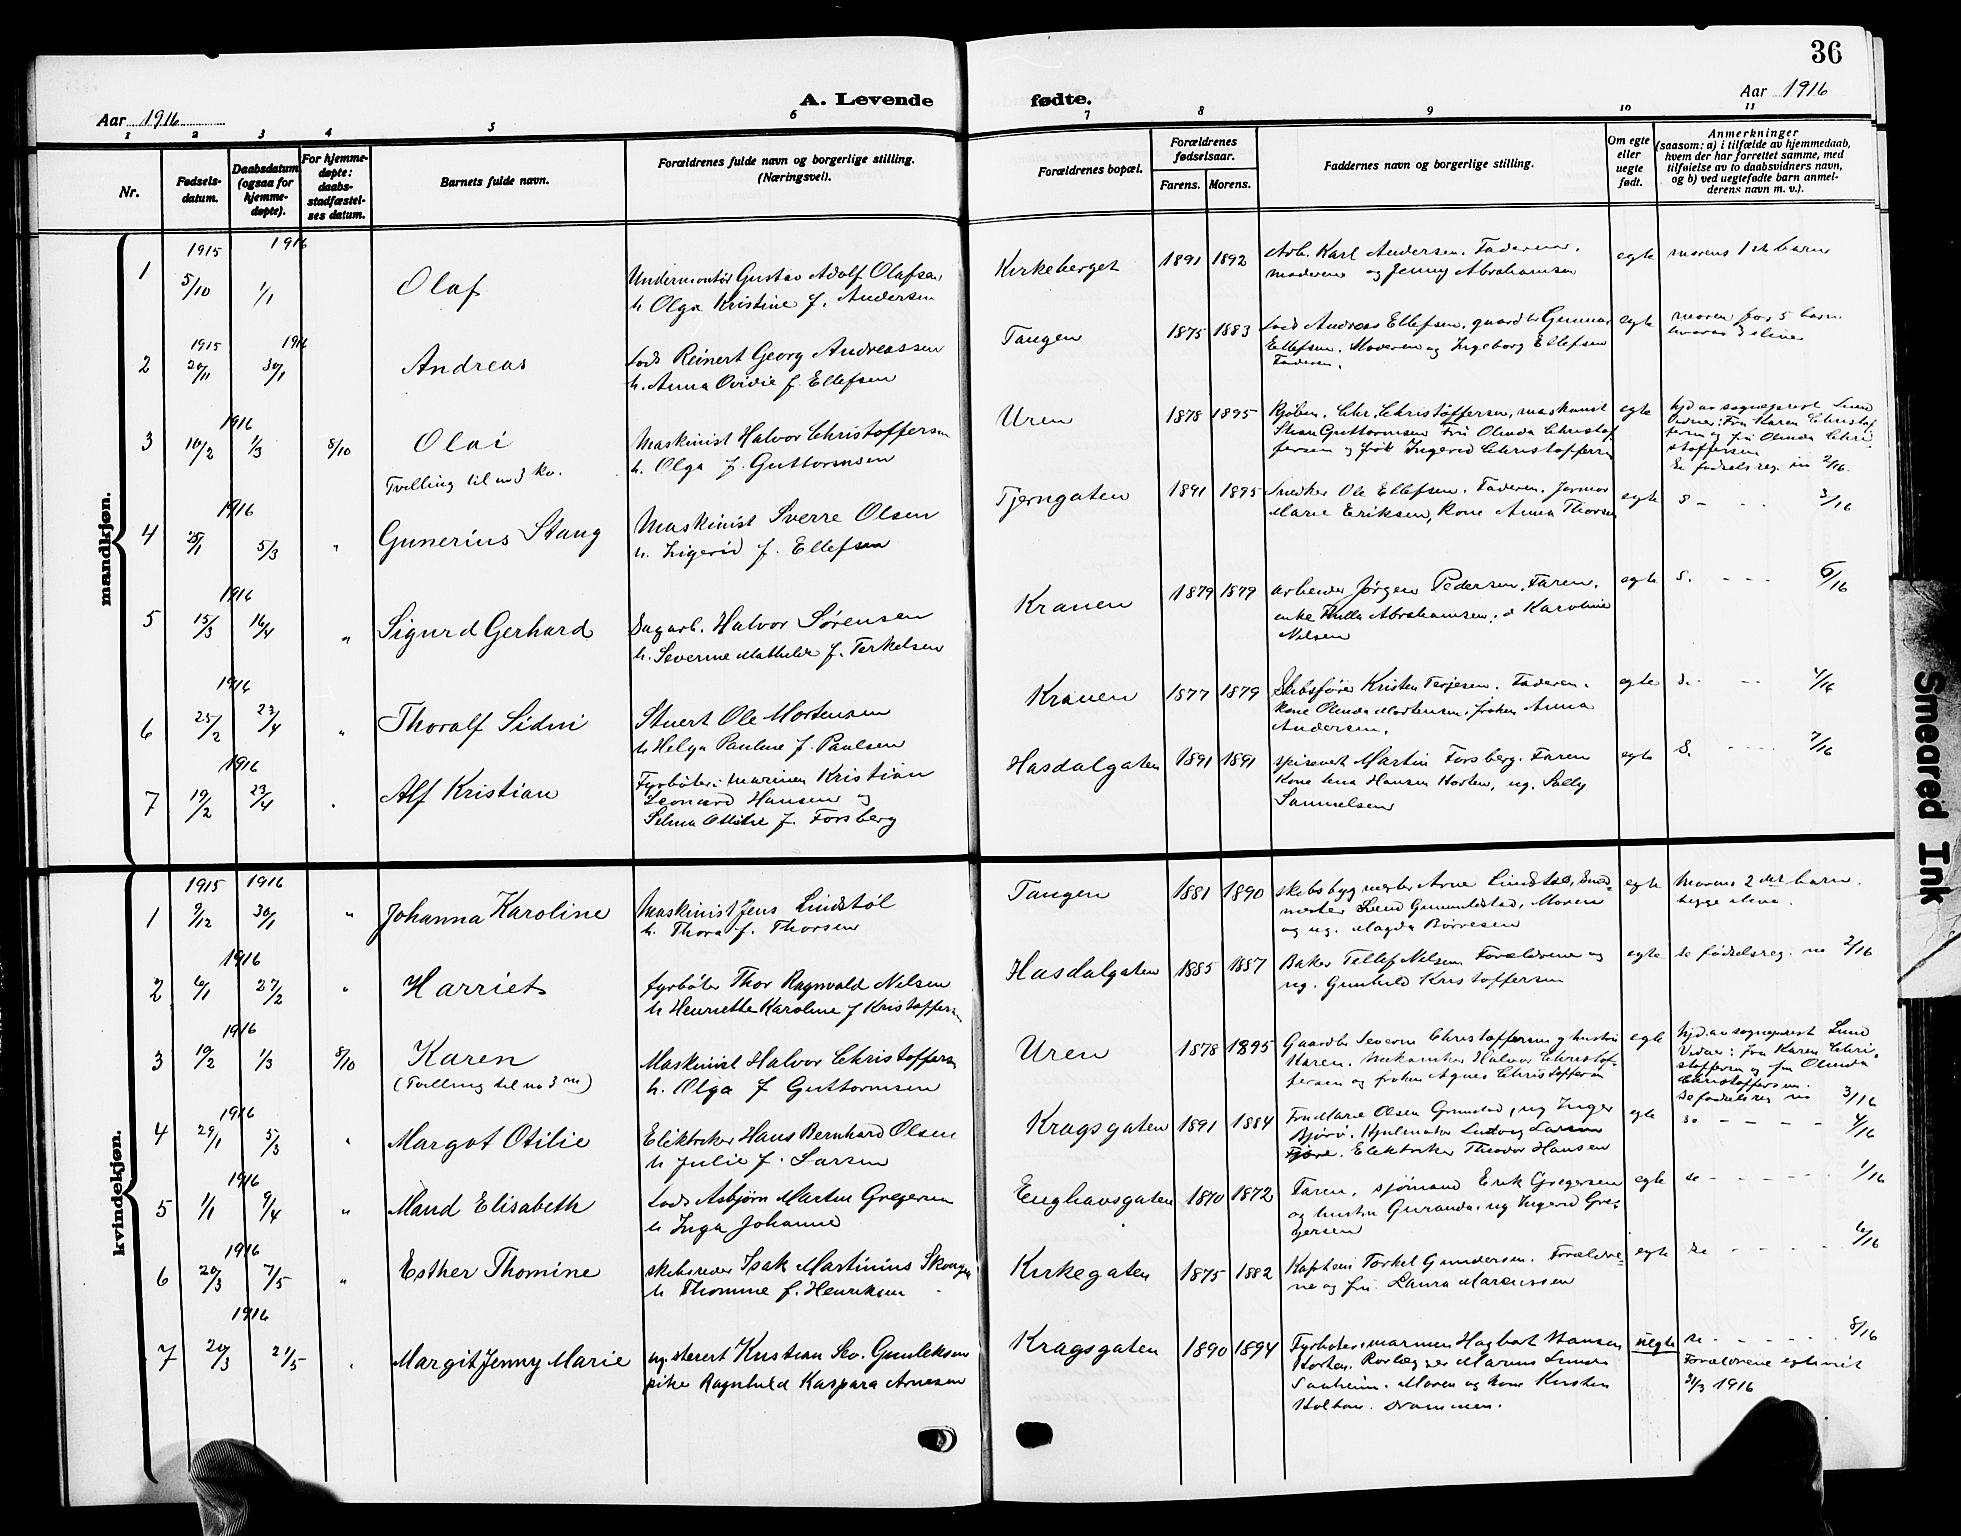 36
A. Levende fødte.
Aar 1916
Aar 1916
1 2 3 4 5 6 7 8 9 10 11
Nr.
Fødsels-
datum.
Daabsdatum
(ogsaa for
hjemme-
døpte).
For hjemme-
døpte:
daabs-
stadfæstel-
ses datum.
Barnets fulde navn.
Forældrenes fulde navn og borgerlige stilling.
(Næringsvei).
Forældrenes bopæl.
Forældrenes
fødselsaar.
Farens. Morens.
Faddernes navn og borgerlige stilling.
Om egte
eller
uegte
født.
Anmerkninger
(saasom: a) i tilfælde av hjemmedaab,
hvem der har forrettet samme, med
tilføielse av to daabsvidners navn,
og b) ved uegtefødte barn anmel-
derens navn m. v.).
mandkjøn.
1 1915 5/10 1916 1/1 Olaf
Undermontør Gustav Adolf Olafsen
h. Olga Kristine f. Andersen
Kirkeberget 1891 1892
Arb. Karl Andersen. Faderen.
moderen og Jenny Abrahamsen
egte morens 1ste barn
2 1915 20/11 1916 30/1 Andreas
Lods Reinert Georg Andreassen
h. Anna Ovidie f. Ellefsen
Tangen 1875 1883
Lods Andreas Ellefsen, gaardbr Gunnar
Ellefsen. Moderen og Ingeborg Ellefsen
Faderen.
egte moren før 5 barn
hvorav 3 i live
3 1916 10/2 1/3 8/10 Olai
Tvilling til no 3 kv.
Maskinist Halvor Christoffersen
h. Olga f. Guttormsen
Uren 1878 1895
Kjøbm. Chr. Christoffersen, maskinist
Guttormsen Fru Olinda Christof-
fersen og frk Ingerid Christoffersen
egte hjd av sogneprest Lund
Vidner: Fru Karen Christof-
fersen og fru Olinda Chri-
stoffersen
Se fødselsreg. no 2/16.
4 1916 25/1 5/3 " Gunerius Stang
Maskinist Sverre Olsen
h. Ingerid f. Ellefsen
Tjerngaten 1891 1895
Snedker Ole Ellefsen. Faderen. Jormor
Marie Eriksen, Kone Anna Thorsen
egte s - - - 3/16
5 1916 15/3 16/4 " Sigurd Gerhard
Dagarb. Halvor Sørensen
h. Severine Mathilde f. Terkelsen
Kranen 1879 1879
arbeider Jørgen Pedersen. Faren.
enke Hulla Abrahamsen. o Karoline
Nilsen
egte s. - - - 6/16
6 1916 25/2 23/4 " Thoralf Sidni
Stuert Ole Mortensen
h Helga Pauline f. Paulsen
Kranen 1877 1879
Skibsfører Kristen Terjesen. Faderen.
Kone Olinda Mortensen. frøken Anna
Andersen.
egte se - - - 4/16
7 1916 19/2 23/4 " Alf Kristian
Fyrbøter i marinen Kristian
Leonard Hansen og
Selma Otilie f. Forsberg
Hasdalgaten 1891 1891
spisevert Martin Forsberg. Faren
Kone Lina Hansen Horten, ug. Sally
Samuelsen
egte S. - - - 7/16
kvindekjøn.
1 1915 9/12 1916 30/1 " Johanna Karoline
Maskinist Jens Lindstøl
h. Thora f. Thorsen
Tangen 1881 1890
skibsbygmester Arne Lindstøl,
mester Lund Grimstad, Moren
og ug. Magda Børresen
egte Morens 2det barn.
begge i live.
2 1916 6/1 27/2 " Harriet
fyrbøter Thor Ragnvald Nilsen
h Henriette Karoline f Kristoffersen
Hasdalgaten 1885 1887
Baker Tellef Nilsen Forældrene og
ug. Gunhild Kristoffersen
egte se fødselsreg. no 2/16
3 1916 10/2 1/3 8/10 Karen
(Tvilling til no 3 m)
Maskinist Halvor Christoffersen
h. Olga f Guttormsen
Uren 1878 1895
Gaardbr Severin Christoffersen og hustru
Karen. Mekaniker Halvor Christof-
fersen og frøken Agnes Christoffersen
egte hjd. av sogneprest Lund
Vidner: Fru Karen Chri-
stoffersen og fru Olinda
Christoffersen.
se fødselsreg no 3/16
4 1916 29/1 5/3 " Margot Otilie
Elektriker Hans Bernhard Olsen
h Julie f. Larsen
Kragsgaten 1891 1884
Fru Marie Olsen Grimstad, ug Inger
Bjørø. Hjulmaker Ludvig Larsen
Fjære. Elektriker Theodor Hansen
egte se - - - - 4/16
5 1916 1/1 9/4 " Maud Elisabeth
Lods Asbjørn Martin Gregersen
h Inga Johanne
Enghavsgaten 1870 1872
Faren. sjømand Erik Gregersen
og hustru Guranda. ug Ingerid Gre-
gersen
egte se - - - - 1/16
6 1916 20/3 7/5 " Esther Thomine
skibsreder Isak Martinius Skougen
h Thomine f. Henriksen
Kirkegaten 1875 1882
Kaptein Torkel Gundersen. Forældre-
ne og fru Laura Marcussen
egte se - - - - 6/16
7 1916 20/3 21/5 " Margit Jenny Marie
ug. stuert Kristian Sev. Gunleksen
pike Ragnhild Kaspara Arnesen
Kragsgaten 1890 1894
Fyrbøter i marinen Hagbart Hansen
Horten. Rørlægger Marius Lunde
Saaheim. Moren og kone Kirsten
Holtan. Drammen.
uegte se - - - - - 8/16
Forældrene egteviet
31/3 1916
Smeared Ink